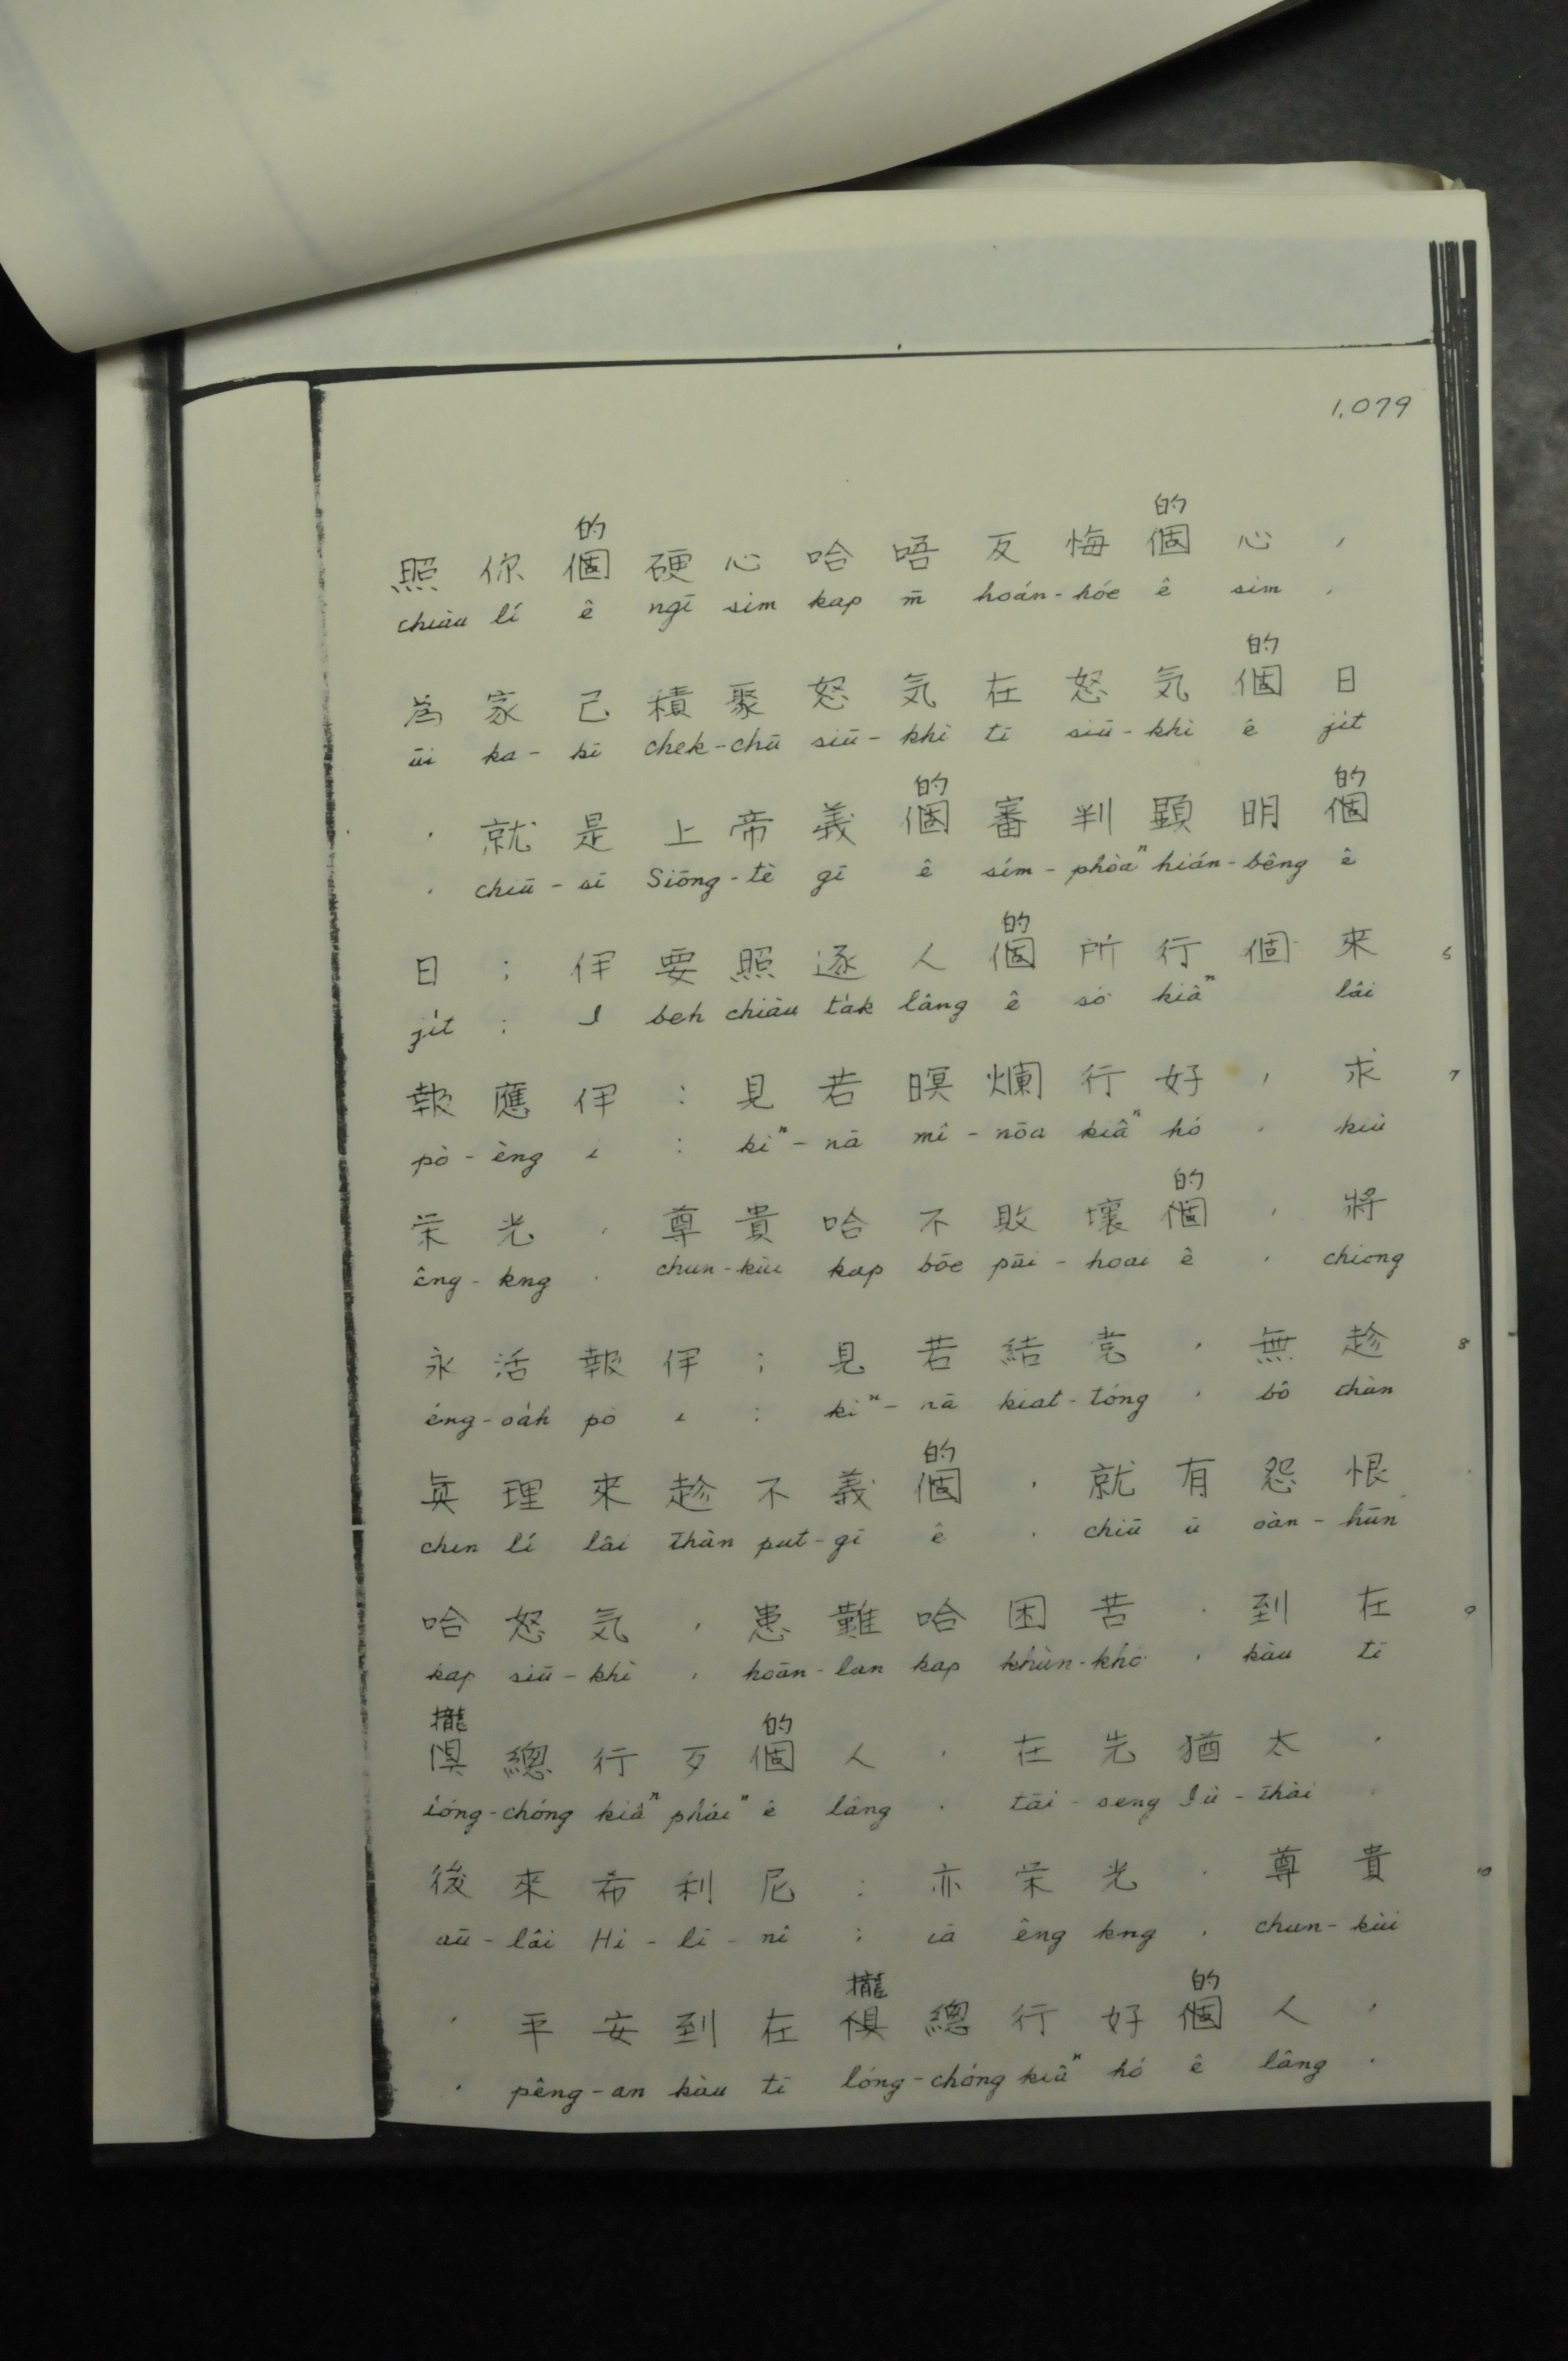 1,079
的 的
照你個硬心哈唔反悔個心,
chiàu lí ê ngī sim kap m̄ hoán-hóe ê sim,
的
為家己積聚怒気在怒気個日
ūi ka-kī chek-chū siū-khì tī siū-khì ê ji̍t
的 的
,就是上帝義個審判顕明個
, chiū-sī Siōng-tè gī ê sím-phòaⁿ hián-bêng ê
的
日;伊要照逐人個所行個來 6
ji̍t; I beh chiàu ta̍k lâng ê só͘ kiâⁿ lâi
報應伊:見若暝爛行好,求 7
pò-èng i: kìⁿ-nā mî-nōa kiâⁿ hó, kiû
的
栄光,尊貴哈不敗壞個,將
êng-kng, chun-kùi kap bōe pāi-hoāi ê, chiong
永活報伊;見若結党,無趁 8
éng-oa̍h pò i: kìⁿ-nā kiat-tóng, bô thàn
的
真理來趁不義個,就有怨恨
chin lí lâi thàn put-gī ê, chiū ū oàn-hūn
哈怒気,患難哈困苦,到在 9
kap siū-khì, hoān-lān kap khùn-khó͘, kàu tī
攏 的
倶總行歹個人,在先猶太,
lóng-chóng kiâⁿ pháiⁿ ê lâng, tāi-seng Iû-thài,
後來希利尼:亦栄光,尊貴 10
aū-lâi Hi-lī-nî; iā êng kng, chun-kùi
攏 的
,平安到在倶總行好個人,
, pêng-an kàu tī lóng-chóng kiâⁿ hó ê lâng,